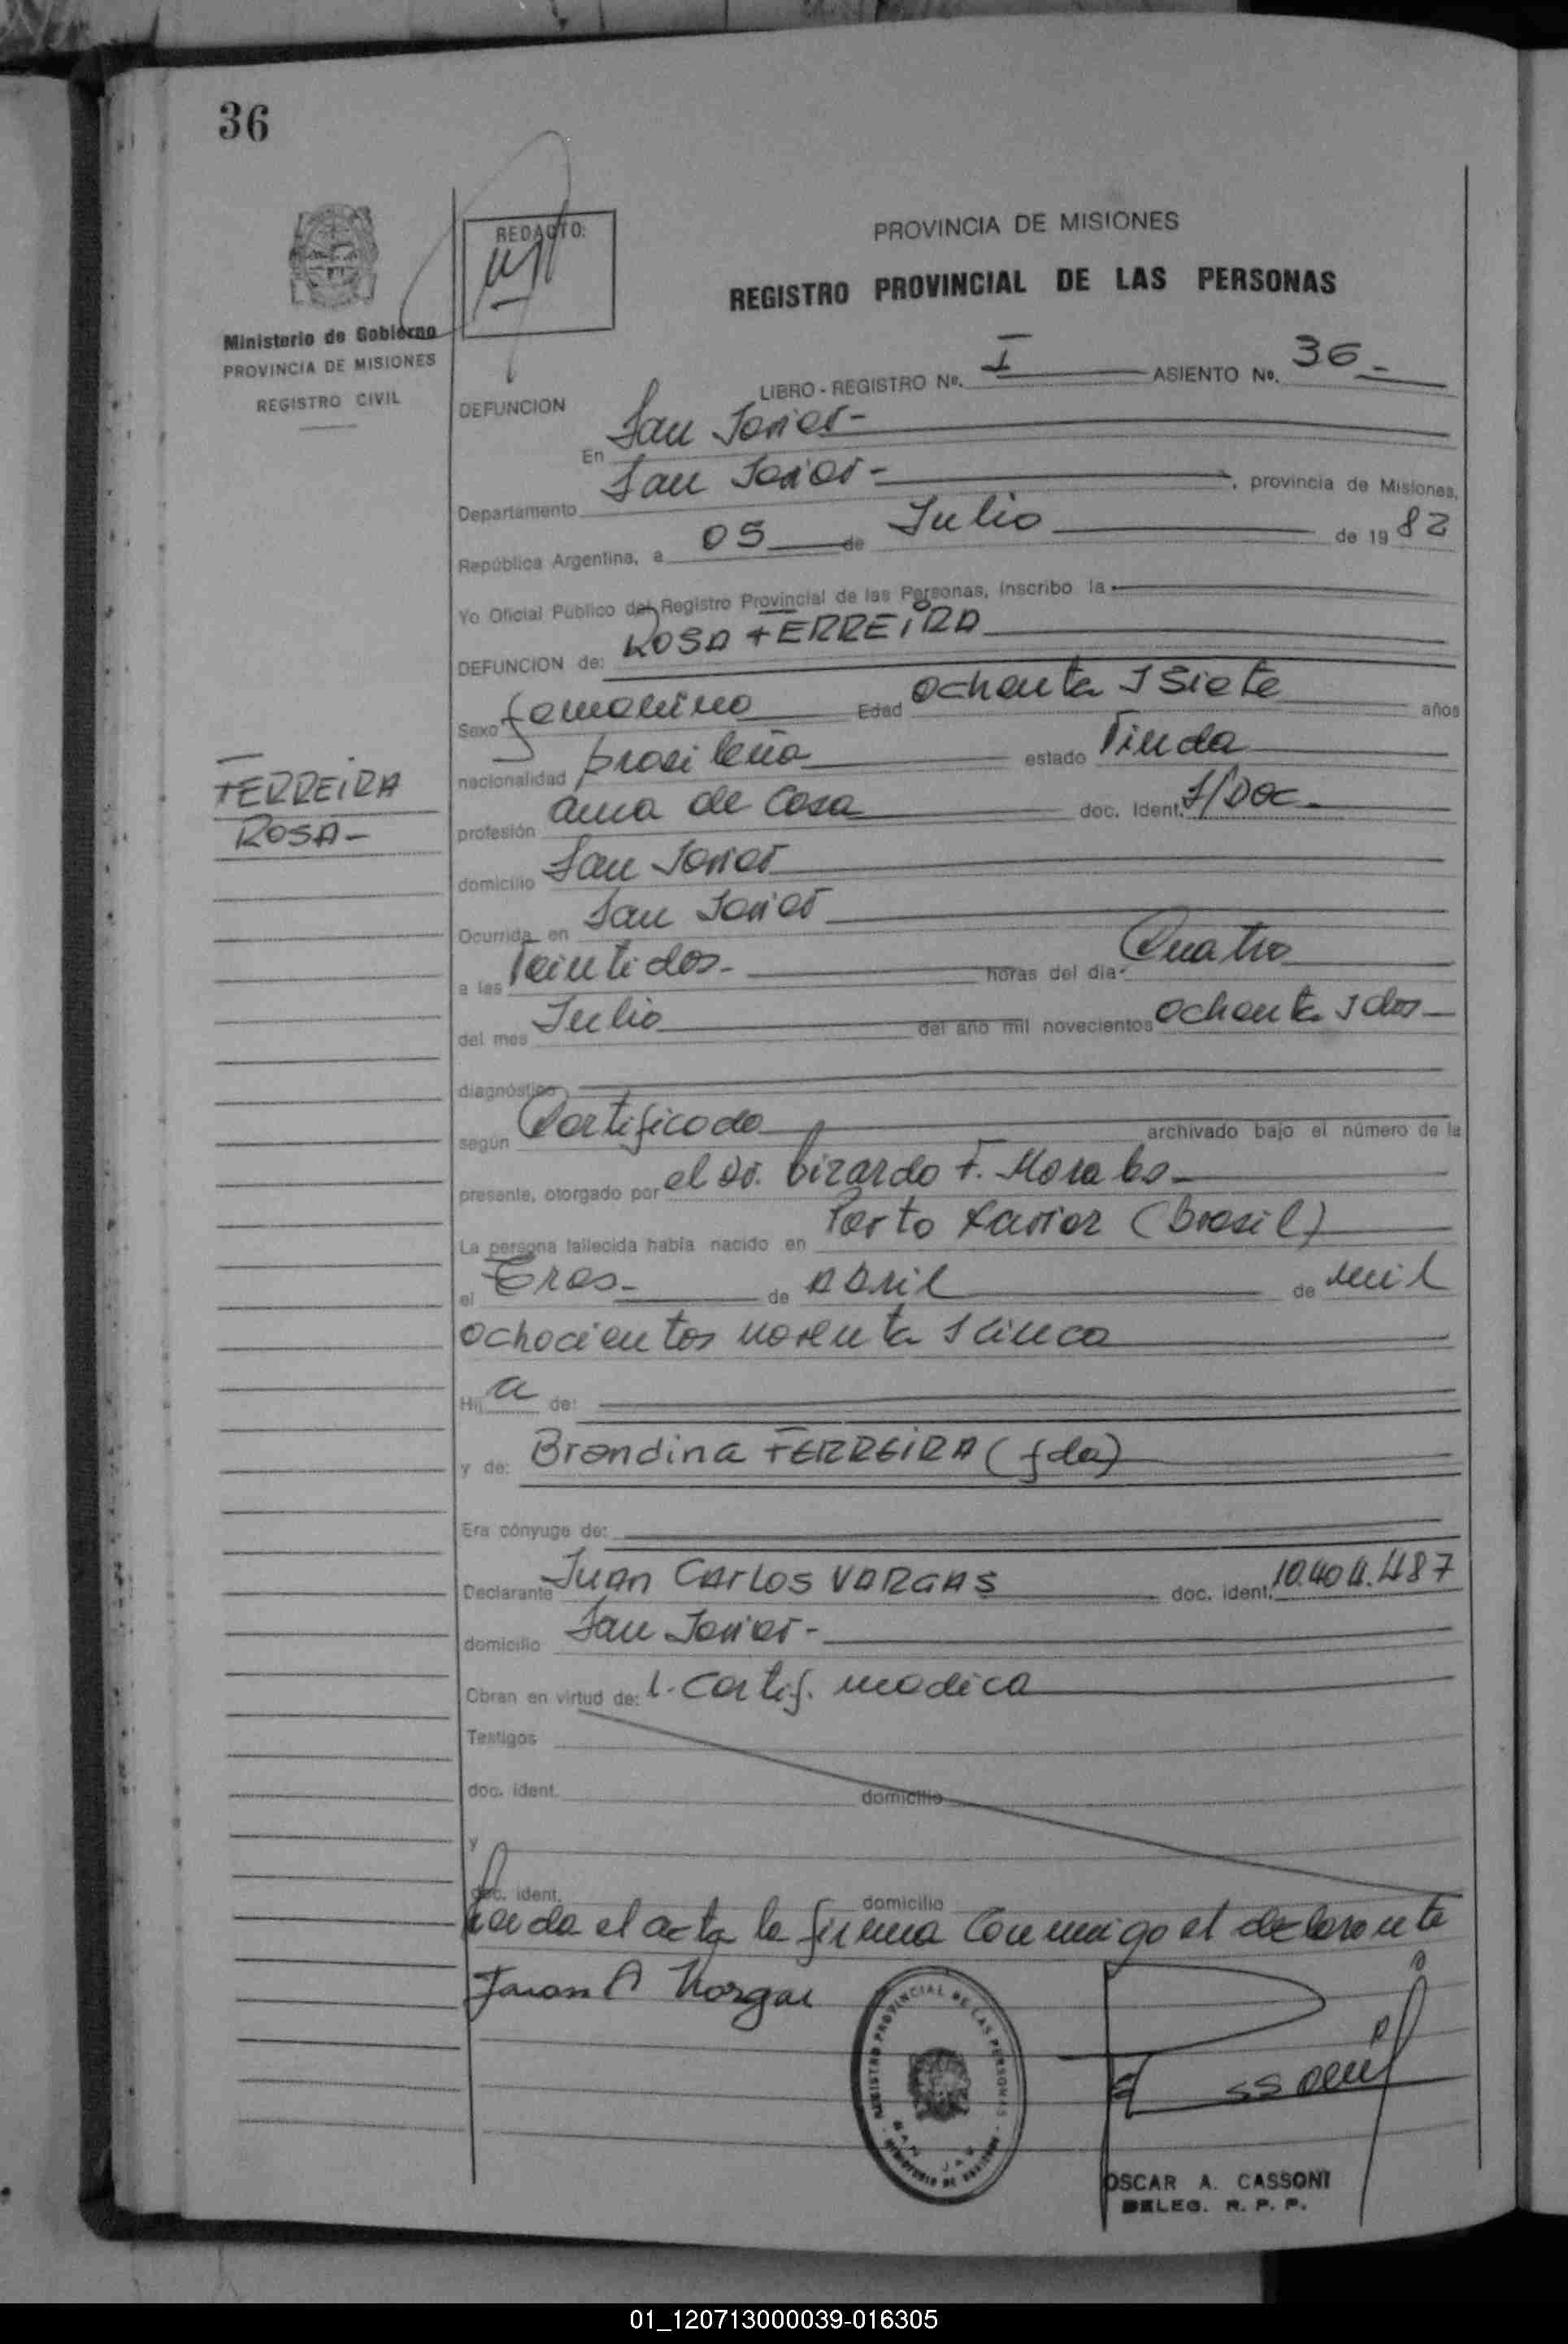 36
REDACTO:
PROVINCIA DE MISIONES
REGISTRO PROVINCIAL DE LAS PERSONAS
Ministerio de Gobierno
PROVINCIA DE MISIONES
REGISTRO CIVIL
LIBRO - REGISTRO Nº. I ASIENTO Nº. 36-
DEFUNCION
En San Javier-
Departamento San Javier- , provincia de Misiones,
República Argentina, a 05 de Julio de 1982
Yo Oficial Público del Registro Provincial de las Personas, inscribo la
DEFUNCION de: ROSA FERREIRA
Sexo femenino Edad ochenta y siete años
nacionalidad brasileña estado Viuda
FERREIRA
ROSA-
profesión ama de casa doc. Ident. S/Doc-
domicilio San Javier
Ocurrida en San Javier
a las Veintidos- horas del dia Cuatro
del mes Julio del año mil novecientos ochenta y dos-
diagnóstico
según Certificado archivado bajo el número de la
presente, otorgado por el Dr. Lizardo F. Morales-
La persona fallecida había nacido en Porto Xavier (Brasil)
el Tres- de Abril de mil
ochocientos noventa y cinco
Hija de:
y de: Brandina FERREIRA (fda)
Era cónyuge de:
Declarante Juan Carlos VARGAS doc. ident. 10.404.487
domicilio San Javier-
Obran en virtud de: 1- Certif. medico
Testigos
doc. ident. domicilio
y
doc. ident. domicilio
Leida el acta la firma conmigo el declarante
REGISTRO PROVINCIAL DE LAS PERSONAS
OSCAR A. CASSONI
DELEG. R. P. P.
01_120713000039-016305